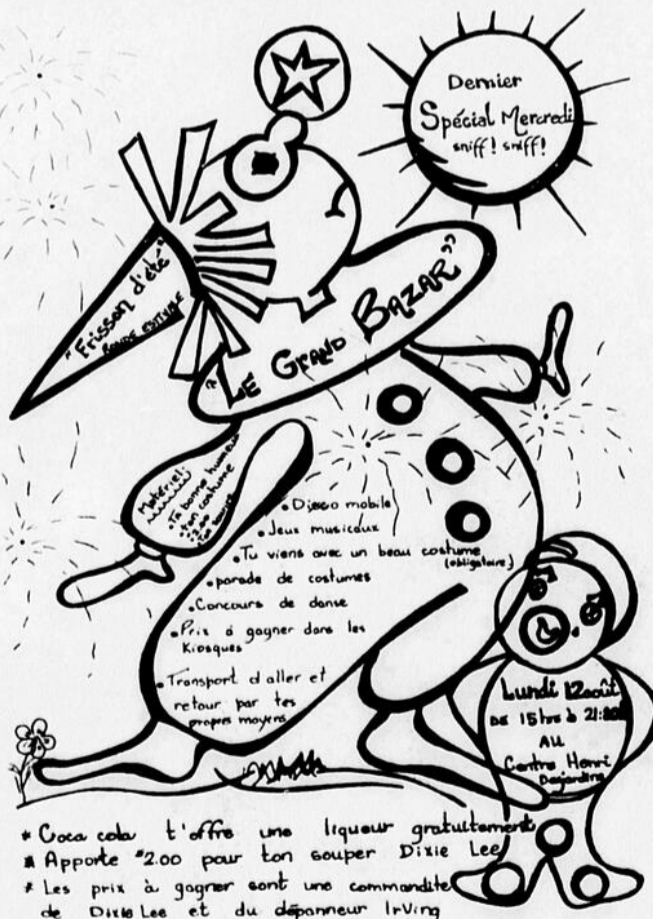 Dernier
Spécial Mercredi
sniff! sniff!
"Frisson d'été"
RONDE ESTIVALE
"LE GRAND BAZAR"
Matériel:
• Ta bonne humeur
• ton costume
• 2.00
• ton sourire
• Disco mobile
• Jeux musicaux
• Tu viens avec un beau costume
(obligatoire)
• parade de costumes
• Concours de danse
• Prix à gagner dans les
Kiosques
• Transport d'aller et
retour par tes
propres moyens
Lundi 12 août
DE 15 hrs à
AU
Centre Henri
Desjardins
* Coca cola t'offre une liqueur gratuitement
* Apporte $2.00 pour ton souper Dixie Lee
* Les prix à gagner sont une commandite
de Dixie Lee et du dépanneur Irving